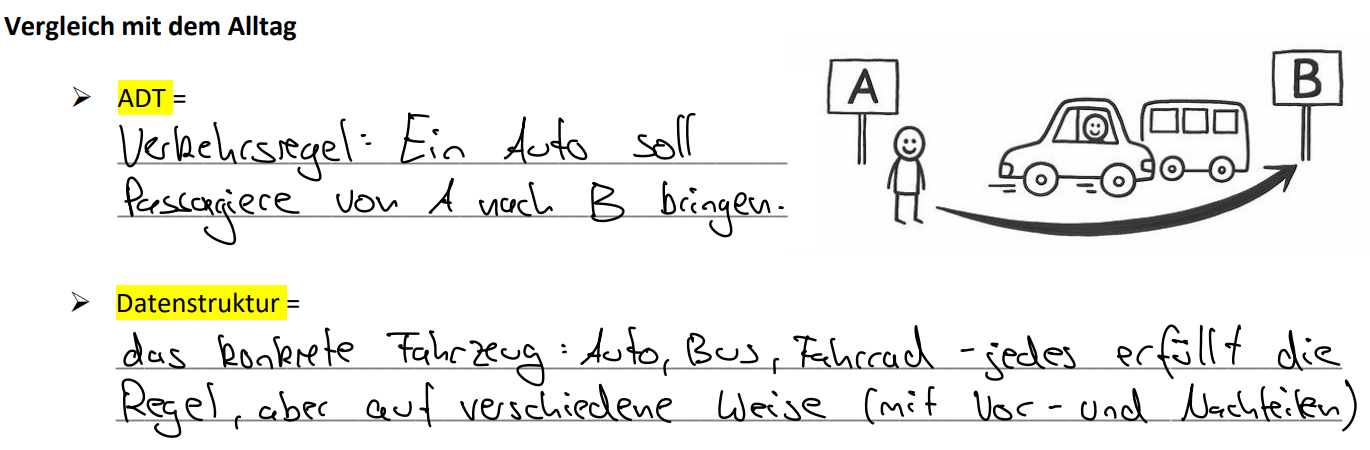 Vergleich mit dem Alltag
A
B
➢ ADT =
Verkehrsregel: Ein Auto soll
Passagiere von A nach B bringen.
➢ Datenstruktur =
das konkrete Fahrzeug: Auto, Bus, Fahrrad - jedes erfüllt die
Regel, aber auf verschiedene Weise (mit Vor- und Nachteilen)